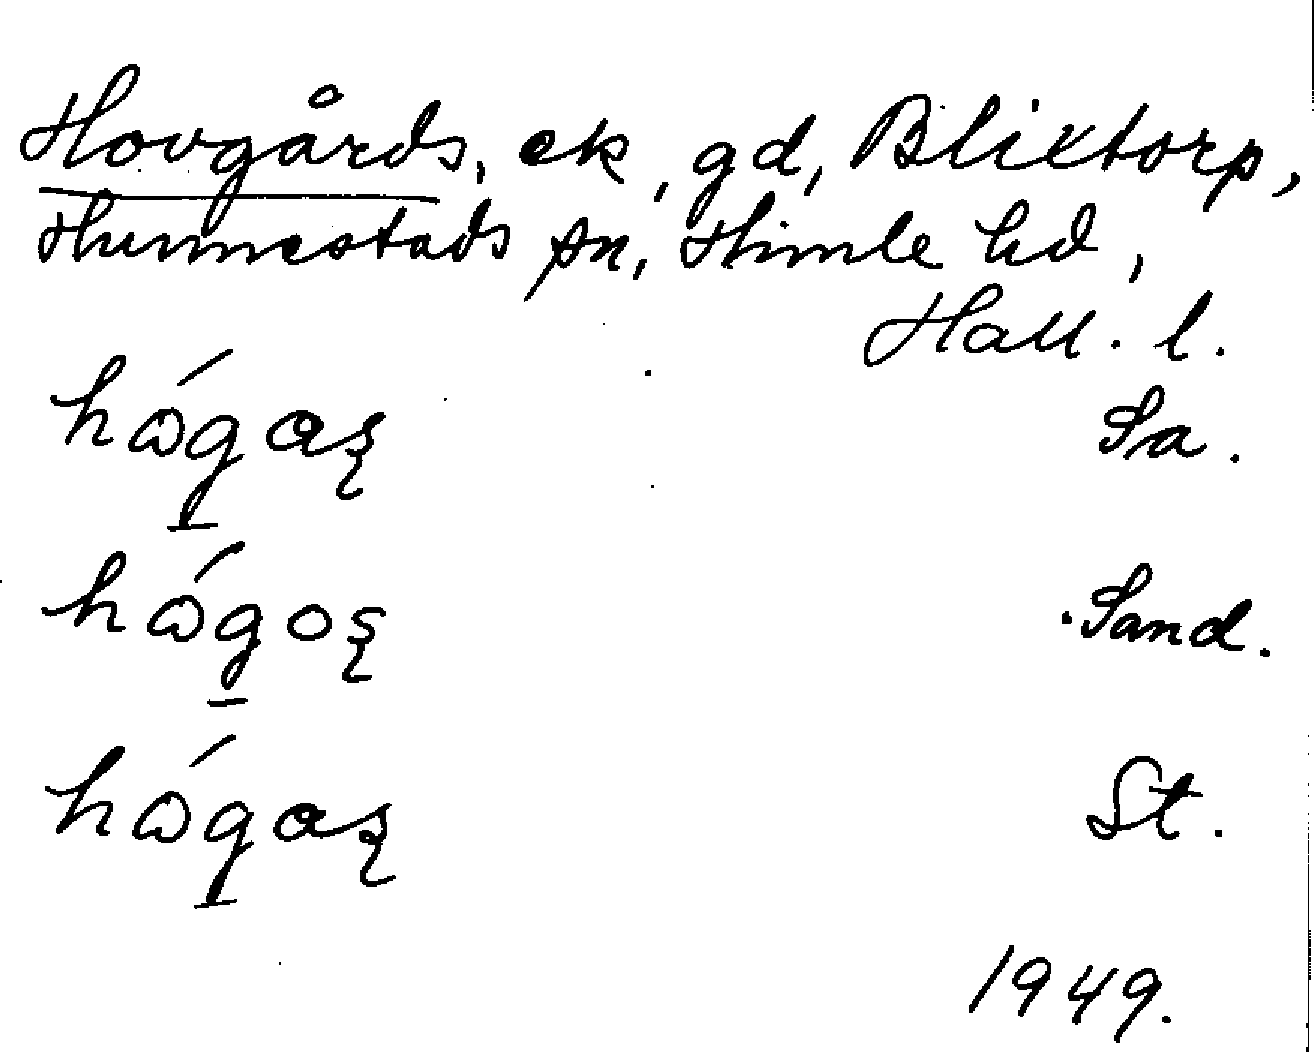 Hovgårds, ek, gd, Blixtorp,
Hunnestads sn, Himle hd,
Hall. l.
hǻgaʂ Sa.
hǻgoʂ Sand.
hǻgaʂ St.
1949.